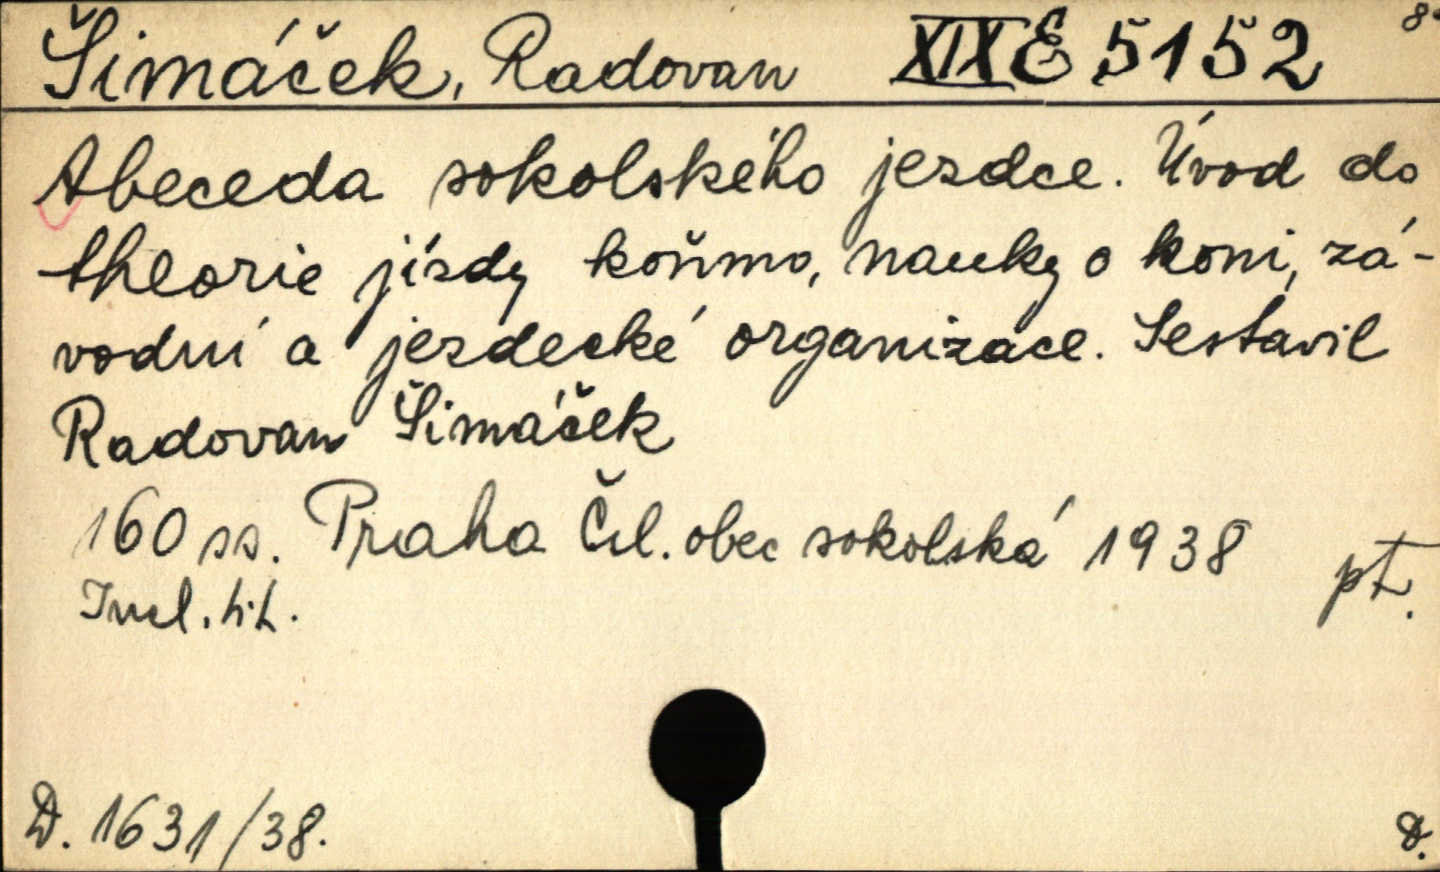 Šimáček, Radovan XIX E 5152 8°
Abeceda sokolského jezdce. Úvod do
theorie jízdy koňmo, nauky o koni, zá-
vodní a jezdecké organizace. Sestavil
Radovan Šimáček
160 ss. Praha Čsl. obec sokolská 1938 pt.
Incl. tit.
D. 1631/38. D.